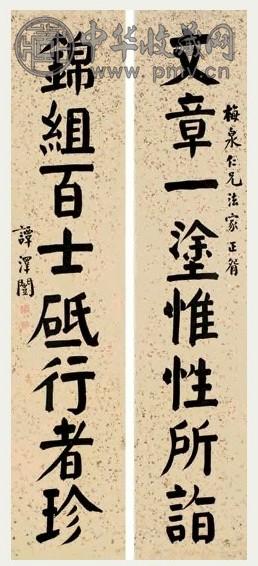 梅泉仁兄法家正腕
文章一塗惟性所詣
錦組百士砥行者珍
譚澤闓
中华收藏网
www.pmv.cn